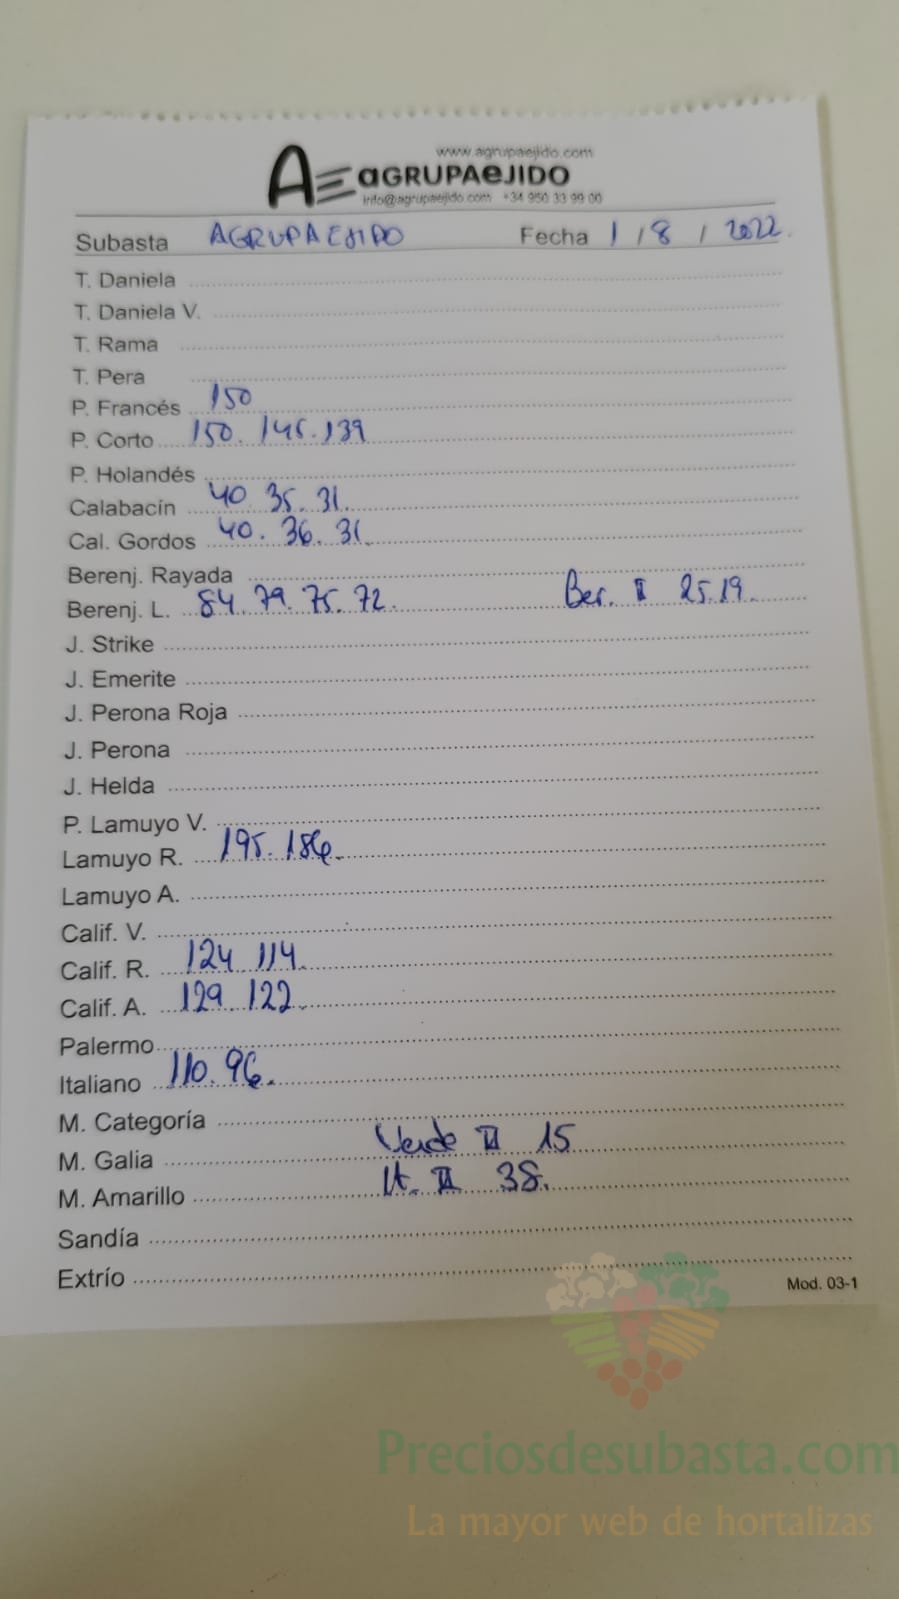 www.agrupaejido.com
AE aGRUPAeJIDO
info@agrupaejido.com +34 950 33 99 00
Subasta AGRUPAEJIDO Fecha 1 / 8 / 2022.
T. Daniela
T. Daniela V.
T. Rama
T. Pera
P. Francés 150
P. Corto 150. 145. 139
P. Holandés
Calabacín 40 35. 31.
Cal. Gordos 40. 36. 31.
Berenj. Rayada
Berenj. L. 84. 79. 75. 72. Ber. II 25.19.
J. Strike
J. Emerite
J. Perona Roja
J. Perona
J. Helda
P. Lamuyo V.
Lamuyo R. 195. 186.
Lamuyo A.
Calif. V.
Calif. R. 124 114.
Calif. A. 129. 122.
Palermo
Italiano 110. 96.
M. Categoría
M. Galia Verde II 15
M. Amarillo It. II 38.
Sandía
Extrío
Mod. 03-1
Preciosdesubasta.com
La mayor web de hortalizas